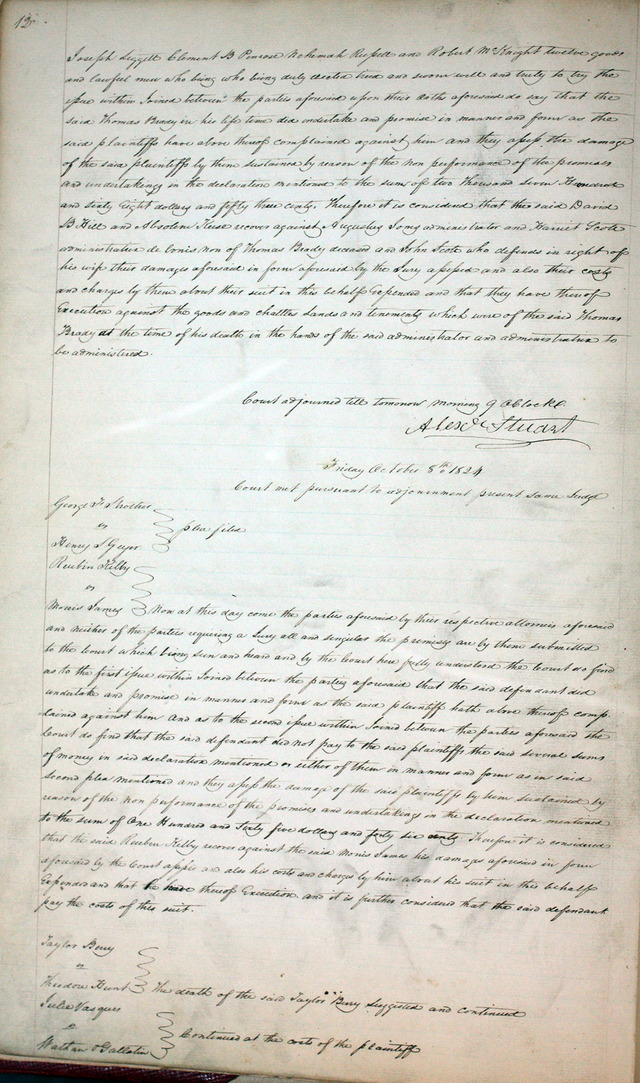 Joseph Liggett Clement B Penrose Nehemiah Russell and Robert McKnight twelve good
and lawful men who being who being duly elected tried and sworn well and truly to try the
issue within Joined between the parties aforesaid upon their Oaths aforesaid do say that the
said Thomas Brady in his life time did undertake and promise in manner and form as the
said plaintiffs have above thereof complained against him and they assess the damage
of the said plaintiffs by them sustained by reason of the non performance of the promises
and undertakings in the declaration mentioned to the sum of two thousand seven Hundred
and sixty eight dollars and fifty three cents. Therefore it is considered that the said David
B Hill and Absolem recover against Augustus Jones administrator and Harriet Scote
administratrix de bonis non of Thomas Brady deceased and John Scote who defends in right of
his wife their damages aforesaid in form aforesaid by the Jury assessed and also their costs
and charges by them about their suit in this behalf Expended and that they have thereof
Execution against the goods and chattles Lands and tenements which were of the said Thomas
Brady at the time of his death in the hands of the said administrator and administratrix to
be administered
Court adjourned till tomorrow morning 9 OClock
Alexr Stuart
Friday October 8th 1824
Court met pursuant to adjournment present same Judge
George F Strother
vs
plea filed
Henry S Geyer
Reubin Kelby
vs
Morris James Now at this day come the parties aforesaid by their respective attornies aforesaid
and neither of the parties requiring a Jury all and singular the premises are by them submitted
to the Court which being seen and heard and by the Court here fully understood the Court do find
as to the first issue within Joined between the parties aforesaid that the said defendant did
undertake and promise in manner and form as the said plaintiff hath above thereof comp
lained against him And as to the second issue within Joined between the parties aforesaid the
Court do find that the said defendant did not pay to the said plaintiffs the said several sums
of money in said declaration mentioned or either of them in manner and form as in said
Second plea mentioned and they assess the damage of the said plaintiffs by him sustained by
reason of the non performance of the promises and undertakings in the declaration mentioned
to the sum of One Hundred and sixty five dollars and forty six cents Therefore it is considered
that the said Reuben Kelby recover against the said Morris James his damages aforesaid in form
aforesaid by the Court assess and also his costs and charges by him about his suit in this behalf
Expended and that he have thereof Execution and it is further considered that the said defendant
pay the costs of this suit.
Taylor Berry
vs
Theodore Hunt The death of the said Taylor Berry suggested and continued
Julie Vasques
vs
Continued at the costs of the plaintiff
Gallatin